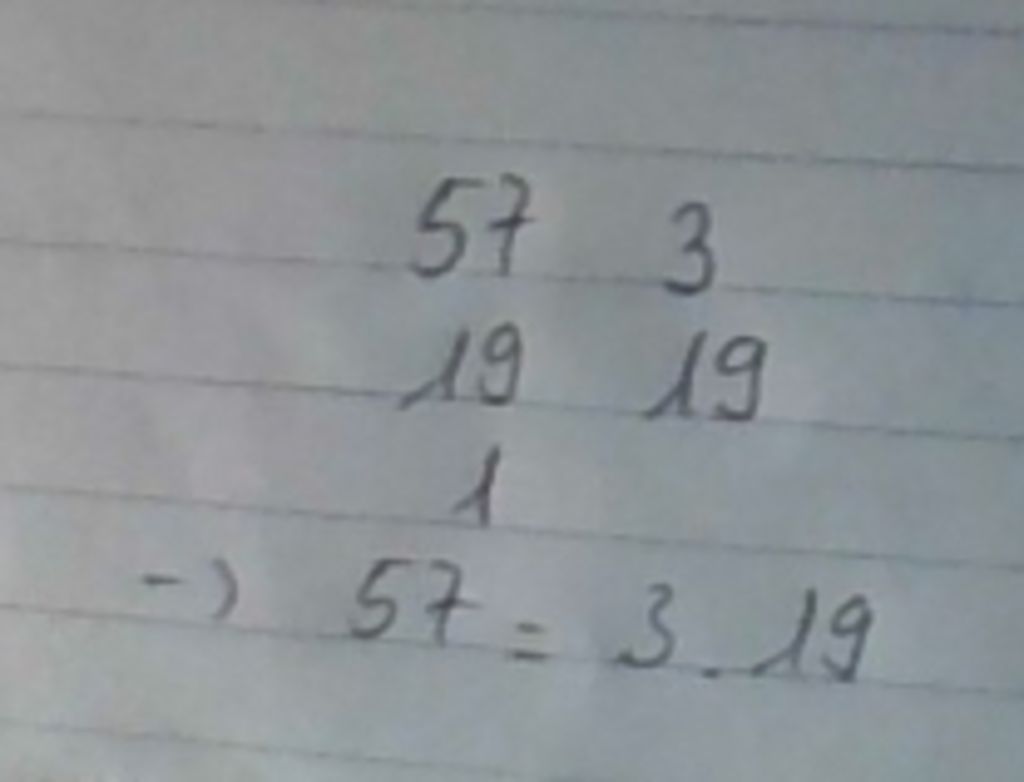 57 3
19 19
1
-> 57 = 3 . 19